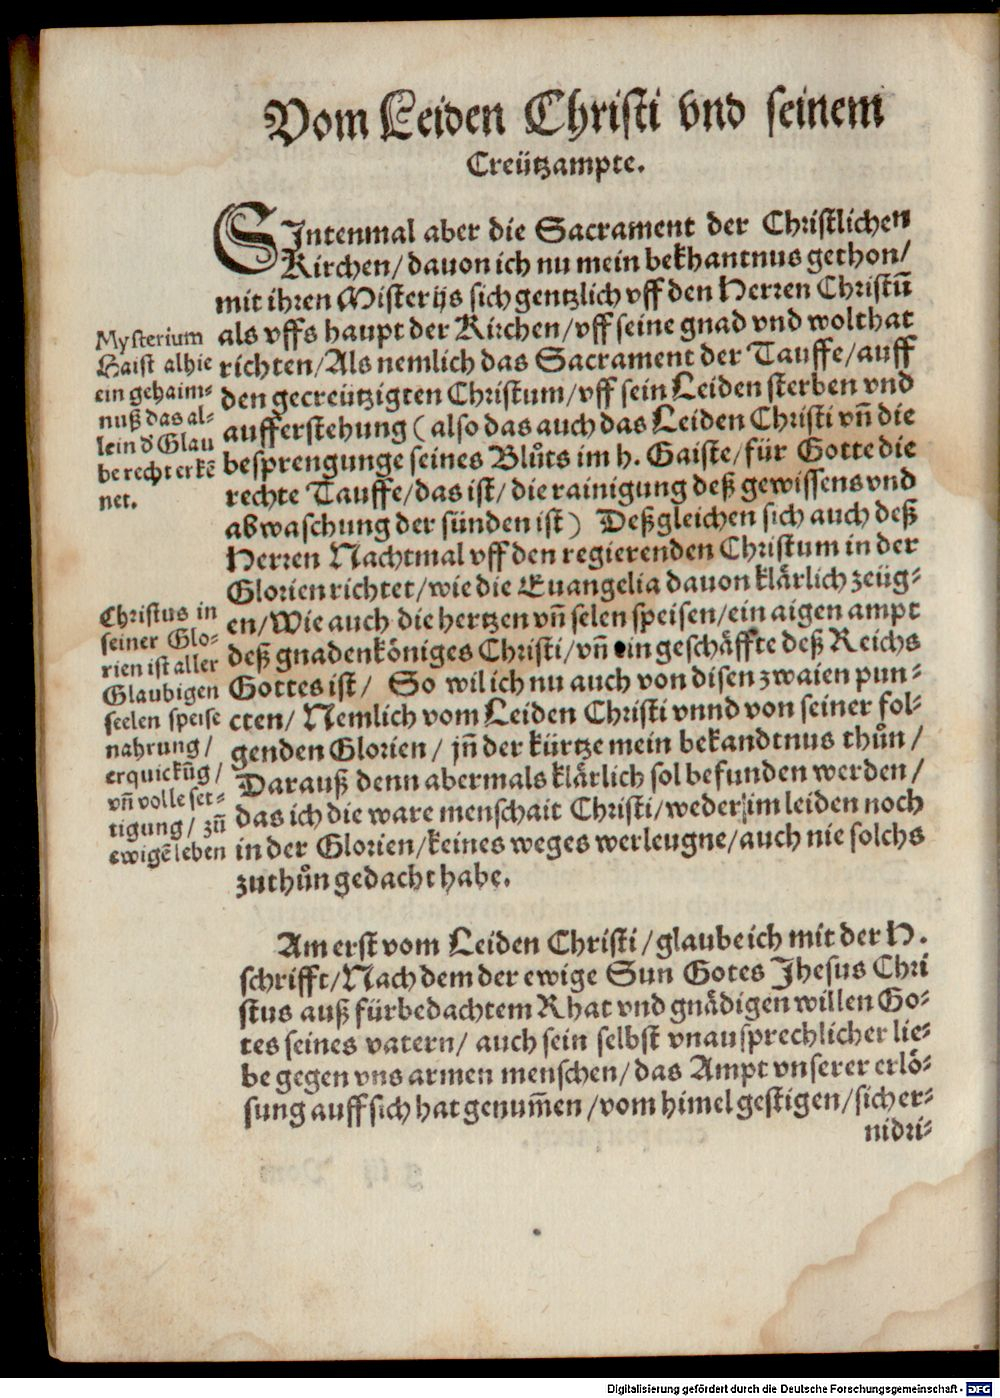 Vom Leiden Christi vnd seinem
Creützampte.
SIntenmal aber die Sacrament der Christlichen
Kirchen/ dauon ich nu mein bekhantnus gethon/
mit ihren Misterijs sich gentzlich vff den Herren Christū
als vffs haupt der Kirchen/ vff seine gnad vnd wolthat
richten/ Als nemlich das Sacrament der Tauffe/ auff
den gecreützigten Christum/ vff sein Leiden sterben vnd
aufferstehung ( also das auch das Leiden Christi vn̄ die
besprengunge seines Blůts im h. Gaiste/ für Gotte die
rechte Tauffe/ das ist/ die rainigung deß gewissens vnd
abwaschung der sünden ist ) Deßgleichen sich auch deß
Herren Nachtmal vff den regierenden Christum in der
Glorien richtet/ wie die Euangelia dauon klärlich zeüg-
en/ Wie auch die hertzen vn̄ selen speisen/ ein aigen ampt
deß gnadenköniges Christi/ vn̄ ein geschäffte deß Reichs
Gottes ist/ So wil ich nu auch von disen zwaien pun-
cten/ Nemlich vom Leiden Christi vnnd von seiner fol-
genden Glorien/ jn̄ der kürtze mein bekandtnus thůn/
Darauß denn abermals klärlich sol befunden werden/
das ich die ware menschait Christi/ weder im leiden noch
in der Glorien/ keines weges werleugne/ auch nie solchs
zuthůn gedacht habe.
Mysterium
Haist alhie
ein gehaim-
nuß das al-
lein d' Glau
be recht erkē
net.
Christus in
seiner Glo-
rien ist aller
Glaubigen
seelen speise
nahrung/
erquickūg/
vn̄ volle set-
tigung/ zū
ewigē leben
Am erst vom Leiden Christi/ glaube ich mit der H.
schrifft/ Nach dem der ewige Sun Gotes Jhesus Chri
stus auß fürbedachtem Rhat vnd gnädigen willen Go-
tes seines vatern/ auch sein selbst vnausprechlicher lie-
be gegen vns armen menschen/ das Ampt vnserer erlö-
sung auff sich hat genum̄en/ vom himel gestigen/ sich er-
nidri-
Digitalisierung gefördert durch die Deutsche Forschungsgemeinschaft - DFG